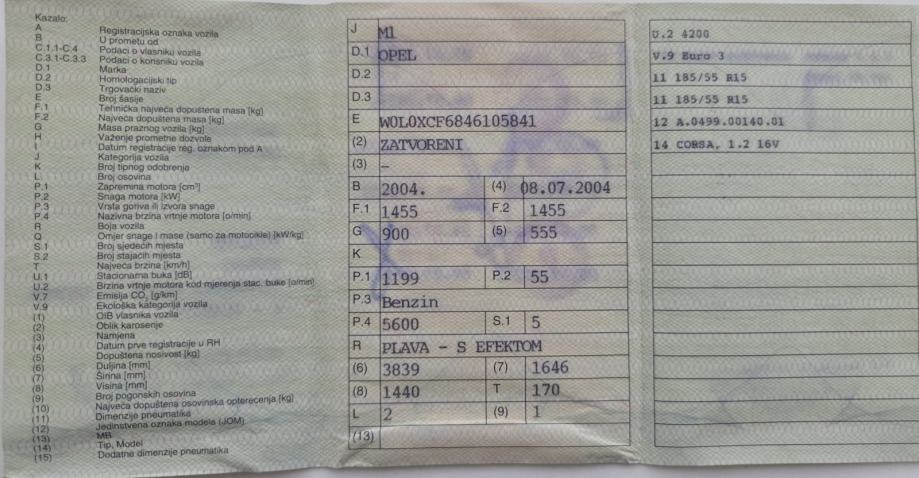 Kazalo:
A Registracijska oznaka vozila
B U prometu od
C.1.1-C.4 Podaci o vlasniku vozila
C.3.1-C.3.3 Podaci o korisniku vozila
D.1 Marka
D.2 Homologacijski tip
D.3 Trgovački naziv
E Broj šasije
F.1 Tehnička najveća dopuštena masa [kg]
F.2 Najveća dopuštena masa [kg]
G Masa praznog vozila [kg]
H Važenje prometne dozvole
I Datum registracije reg. oznakom pod A
J Kategorija vozila
K Broj tipnog odobrenje
L Broj osovina
P.1 Zapremina motora [cm³]
P.2 Snaga motora [kW]
P.3 Vrsta goriva ili izvora snage
P.4 Nazivna brzina vrtnje motora [o/min]
R Boja vozila
Q Omjer snage i mase (samo za motocikle) [kW/kg]
S.1 Broj sjedećih mjesta
S.2 Broj stajaćih mjesta
T Najveća brzina [km/h]
U.1 Stacionarna buka [dB]
U.2 Brzina vrtnje motora kod mjerenja stac. buke [o/min]
V.7 Emisija CO₂ [g/km]
V.9 Ekološka kategorija vozila
(1) OIB vlasnika vozila
(2) Oblik karoserije
(3) Namjena
(4) Datum prve registracije u RH
(5) Dopuštena nosivost [kg]
(6) Duljina [mm]
(7) Širina [mm]
(8) Visina [mm]
(9) Broj pogonskih osovina
(10) Najveća dopuštena osovinska opterećenja [kg]
(11) Dimenzije pneumatika
(12) Jedinstvena oznaka modela (JOM)
(13) MB
(14) Tip, Model
(15) Dodatne dimenzije pneumatika
J M1
D.1 OPEL
D.2
D.3
E W0L0XCF6846105841
(2) ZATVORENI
(3) –
B 2004. (4) 08.07.2004
F.1 1455 F.2 1455
G 900 (5) 555
K
P.1 1199 P.2 55
P.3 Benzin
P.4 5600 S.1 5
R PLAVA - S EFEKTOM
(6) 3839 (7) 1646
(8) 1440 T 170
L 2 (9) 1
(13)
U.2 4200
V.9 Euro 3
11 185/55 R15
11 185/55 R15
12 A.0499.00140.01
14 CORSA, 1.2 16V